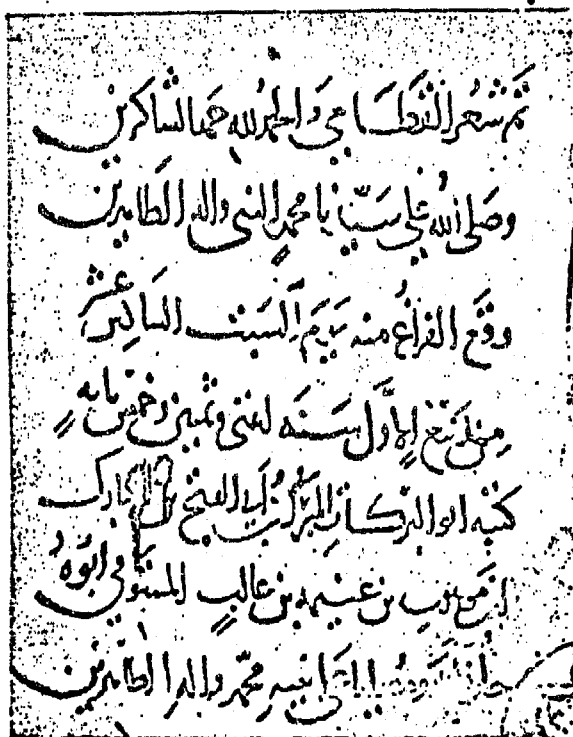 تم شعر القطامي والحمد لله حمد الشاكرين
وصلى الله على سيدنا محمد النبي واله الطاهرين
وقع الفراغ منه يوم السبت الثالث عشر
من ربيع الاول سنة اثنى وثمنين وخمس مايه
كتبه ابو البركات المبرك بن ابى الفتح بن المبارك
ابن موهوب بن غنيمه بن غالب المستوفى ابوه
محمد واله الطاهرين